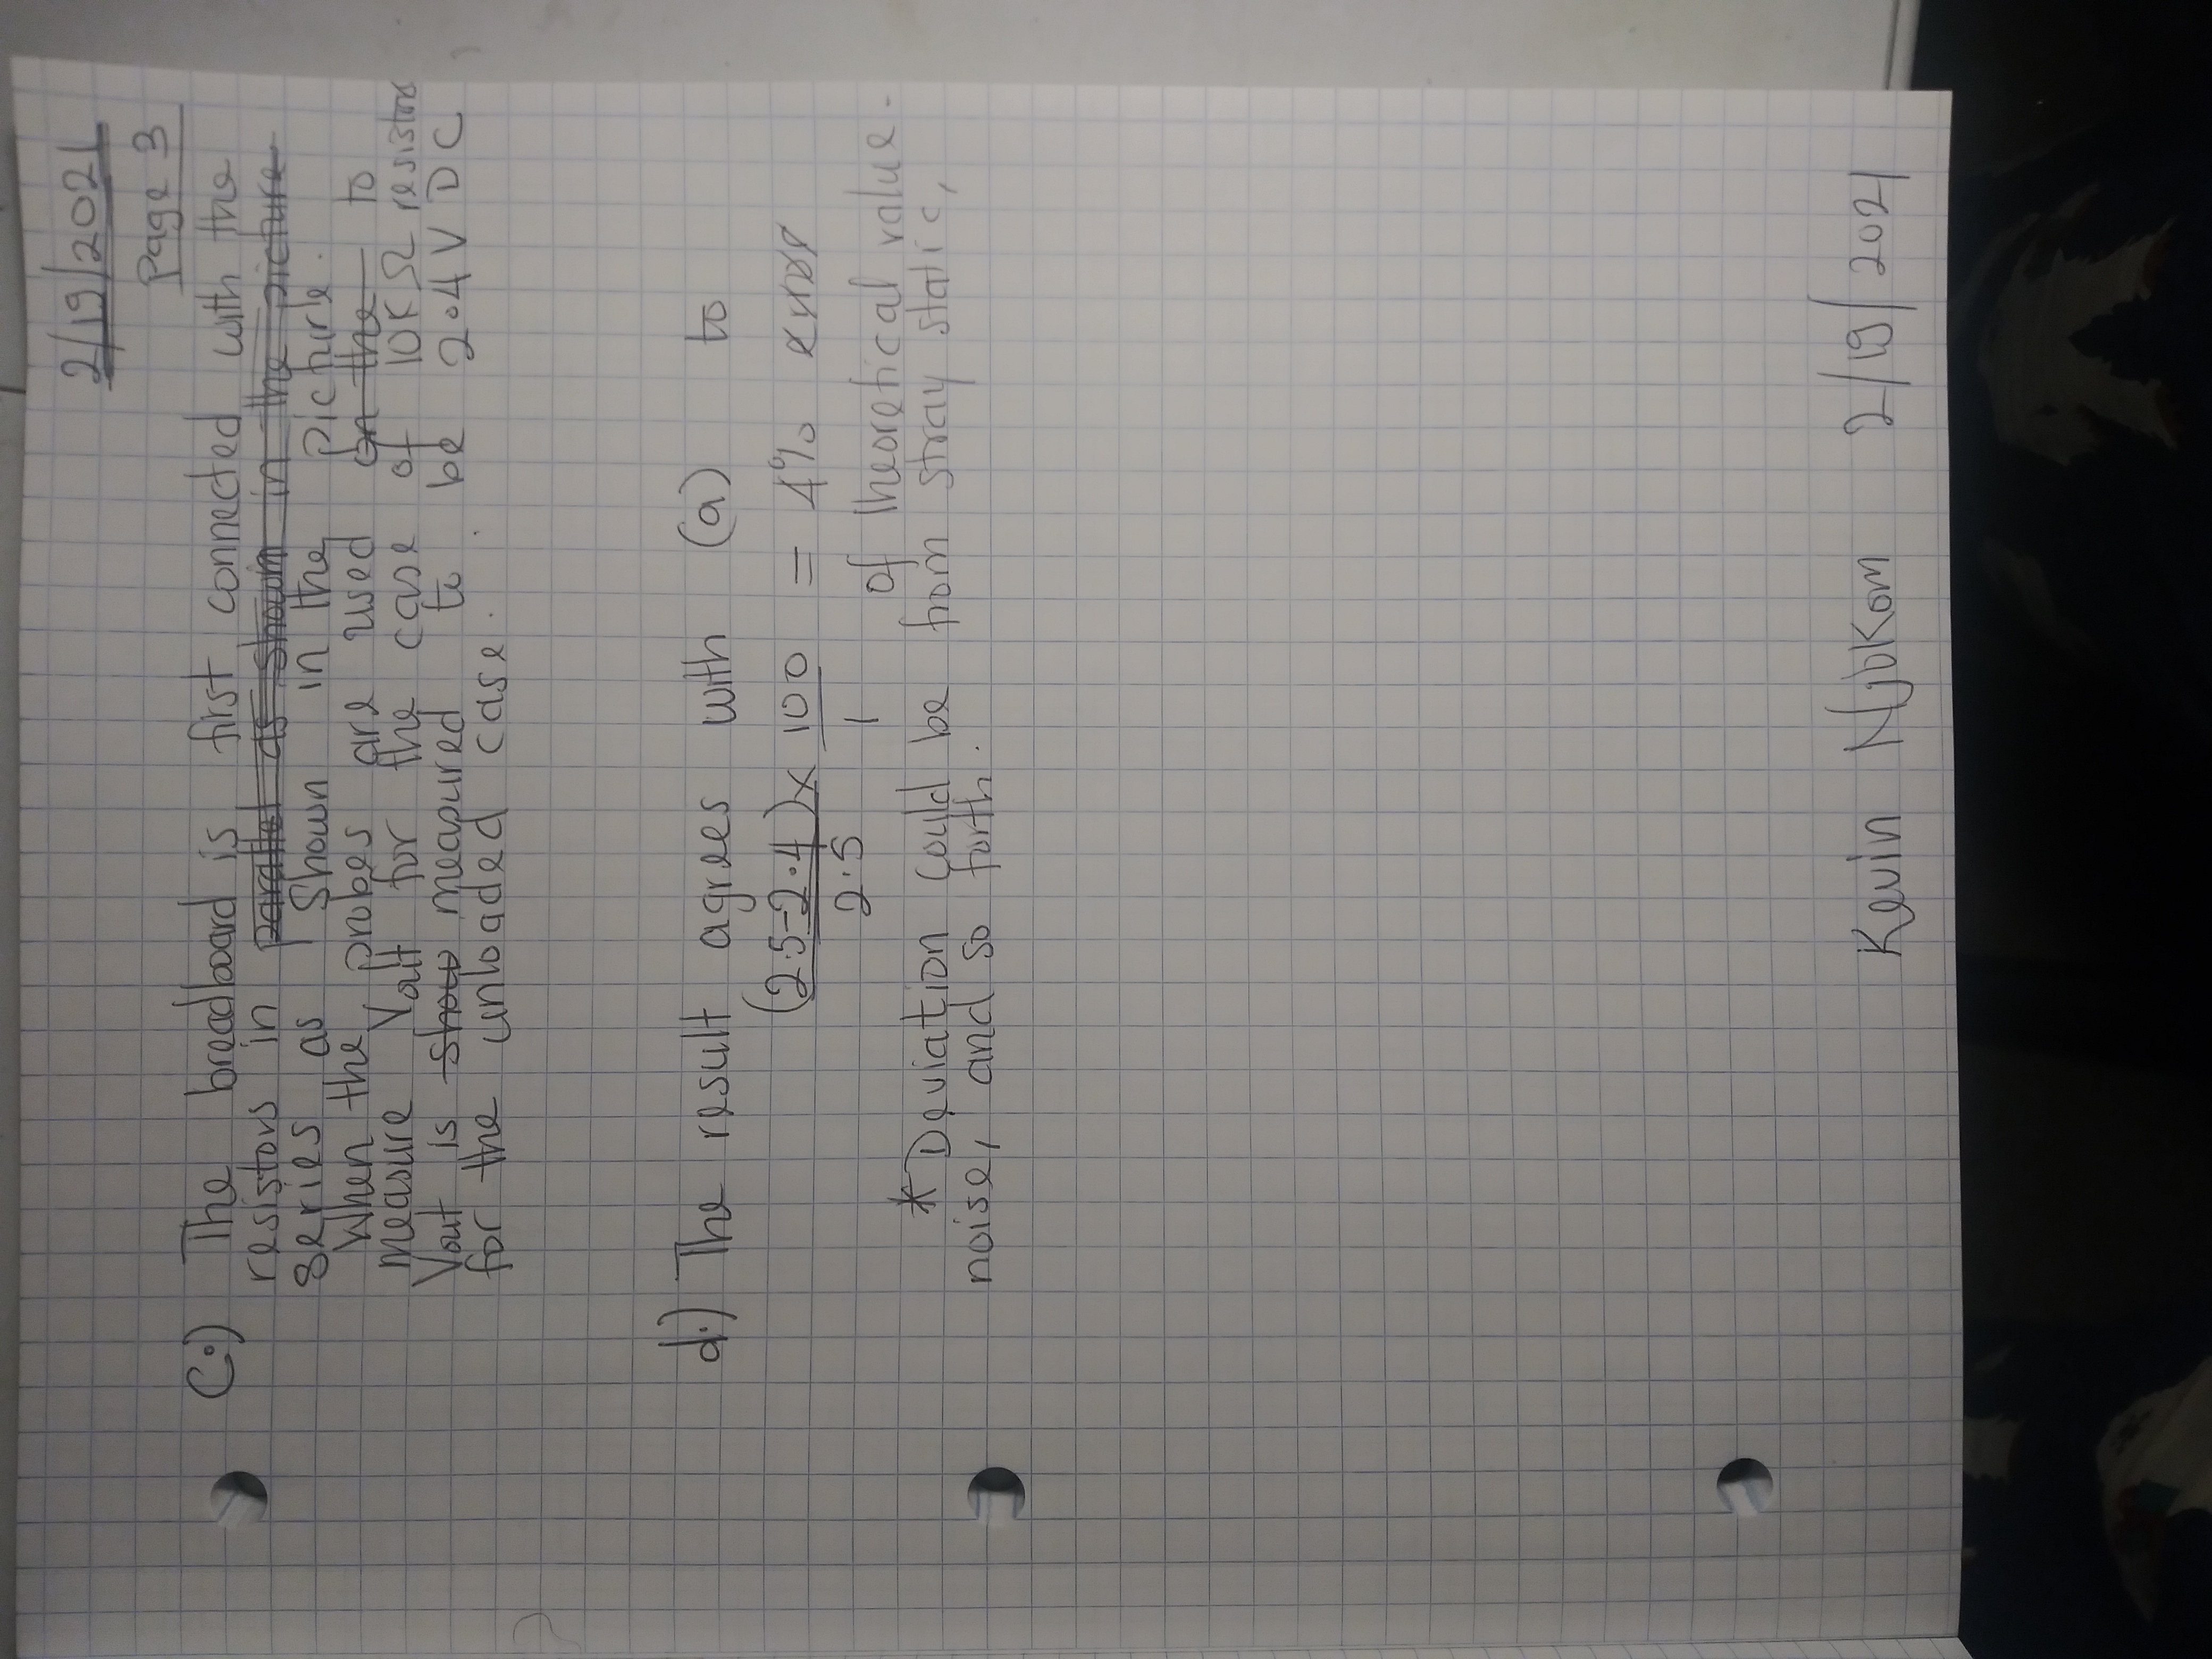 2/19/2021
Page 3
(c.) The breadboard is first connected with the
resistors in parallel as shown in the picture
series as shown in the picture.
When the probes are used on the to
measure Vout for the case of 10KΩ resistors
Vout is show measured to be 2.4V DC
for the unloaded case.
d.) The result agrees with (a) to
(2.5-2.4) x 100 = 4% error
2.5 1
of theoretical value.
* Deviation could be from stray static,
noise, and so forth.
Kevin Njokom 2/19/2021